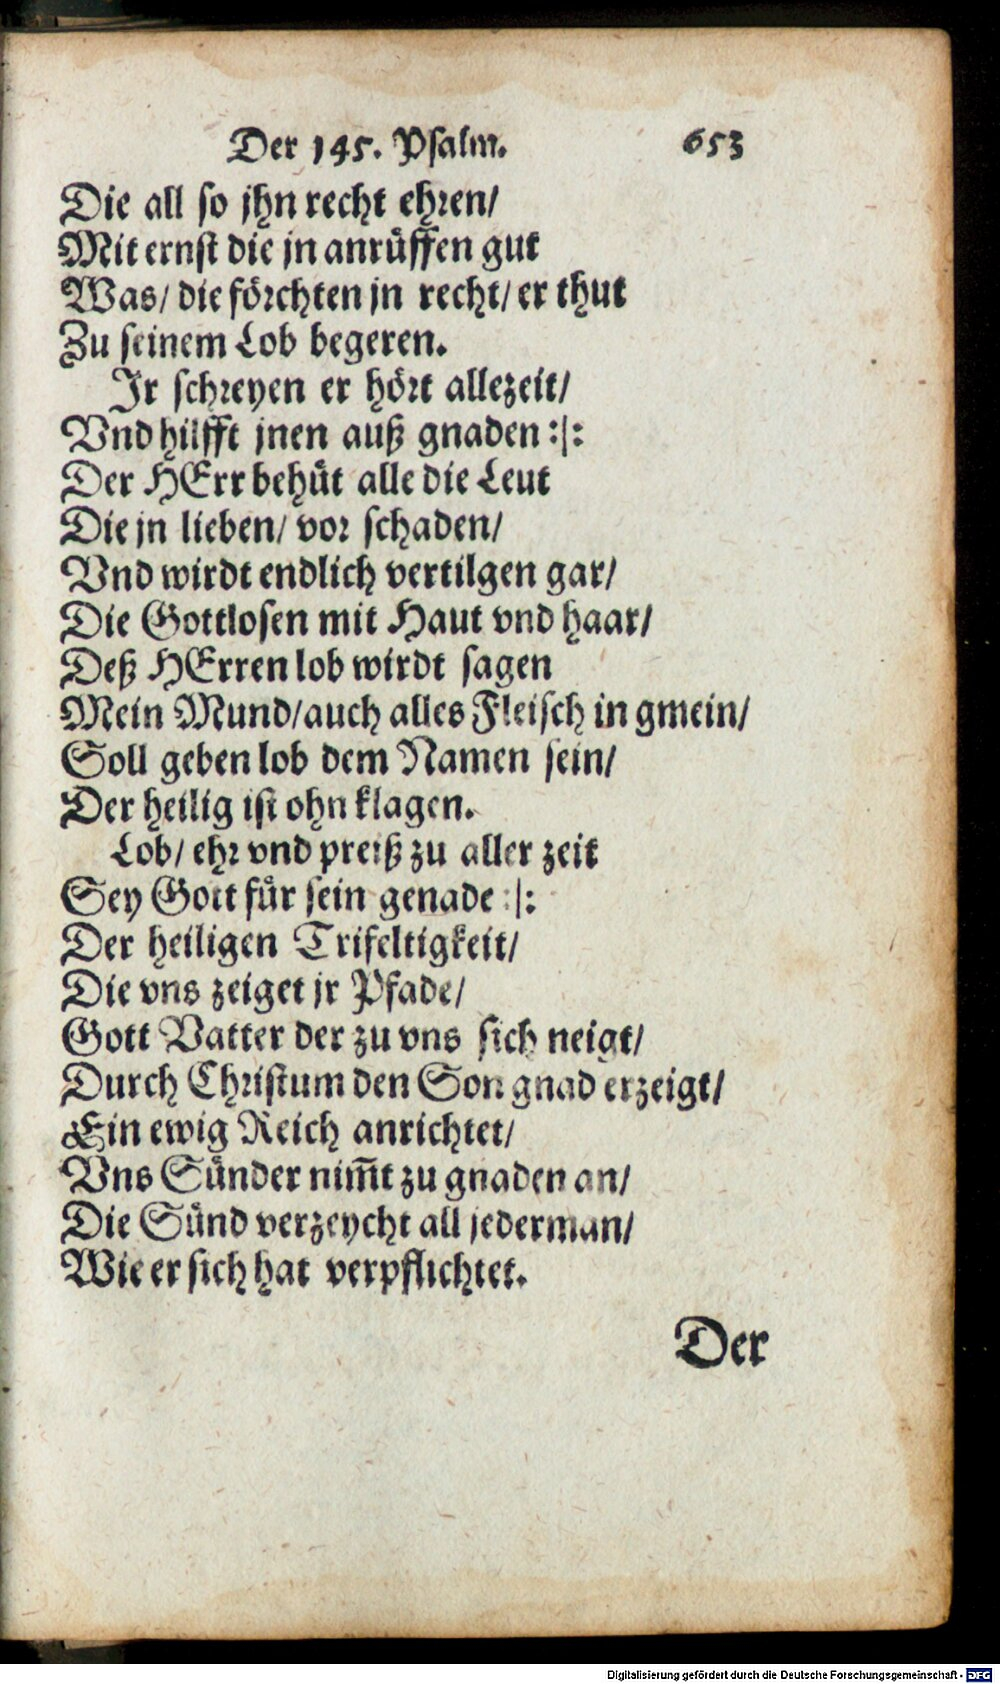 Der 145. Psalm. 653
Die all so jhn recht ehren/
Mit ernst die jn anrüffen gut
Was/ die förchten jn recht/ er thut
Zu seinem Lob begeren.
Jr schreyen er hört allezeit/
Vnd hilfft jnen auß gnaden :|:
Der HErr behüt alle die Leut
Die jn lieben/ vor schaden/
Vnd wirdt endlich vertilgen gar/
Die Gottlosen mit Haut vnd haar/
Deß HErren lob wirdt sagen
Mein Mund/ auch alles Fleisch in gmein/
Soll geben lob dem Namen sein/
Der heilig ist ohn klagen.
Lob/ ehr vnd preiß zu aller zeit
Sey Gott für sein genade :|:
Der heiligen Trifeltigkeit/
Die vns zeiget jr Pfade/
Gott Vatter der zu vns sich neigt/
Durch Christum den Son gnad erzeigt/
Ein ewig Reich anrichtet/
Vns Sünder nim̃t zu gnaden an/
Die Sünd verzeycht all jederman/
Wie er sich hat verpflichtet.
Der
Digitalisierung gefördert durch die Deutsche Forschungsgemeinschaft - DFG